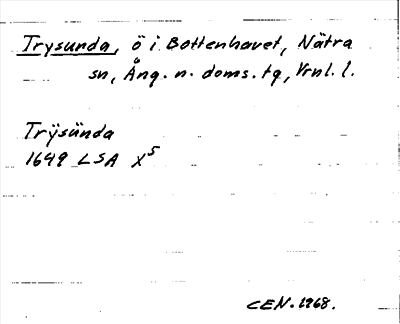 Trysunda, ö i Bottenhavet, Nätra
sn, Ång. n. doms. tg, Vrnl. l.
Trÿsünda
1649 LSA X5
CEN. 1968.